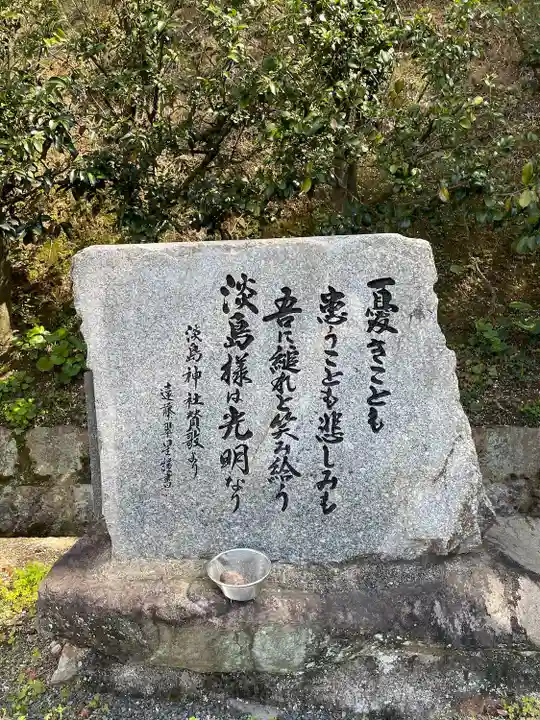 憂きことも
患うことも悲しみも
吾に縋れと笑み給う
淡島様は光明なり
淡島神社賛歌より
遠藤翠星謹書